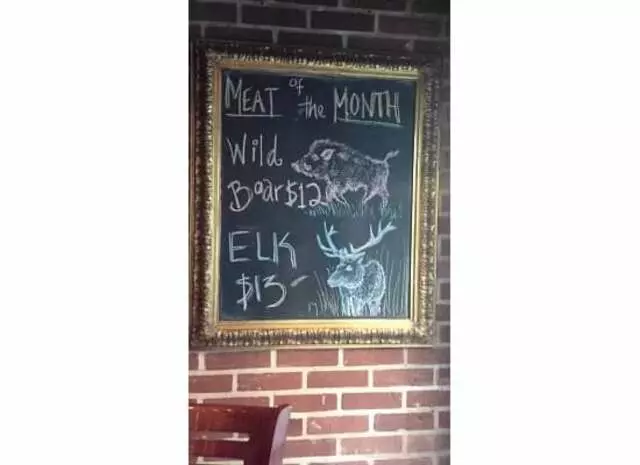 MEAT of the MONTH
Wild
Boar $12
ELK
$13-